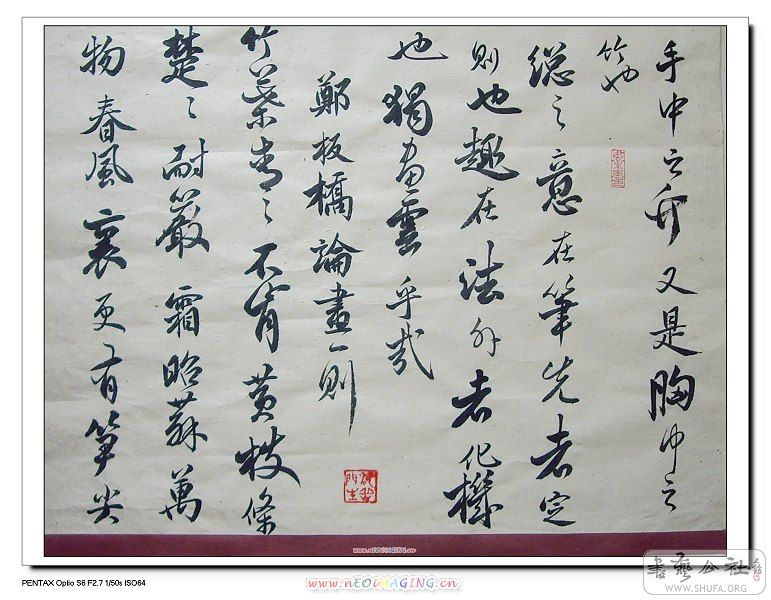 手中之竹又是胸中之
竹也
總之意在筆先者定
則也趣在法外者化機
也獨畫雲乎哉
鄭板橋論畫一則
竹葉青〻不肯黃枝條
楚〻耐嚴霜昭蘇萬
物春風裏更有筍尖
www.nEOiMAGiNG.cn
PENTAX Optio S6 F2.7 1/50s ISO64
www.nEOiMAGiNG.cn
書藝公社
WWW.SHUFA.ORG